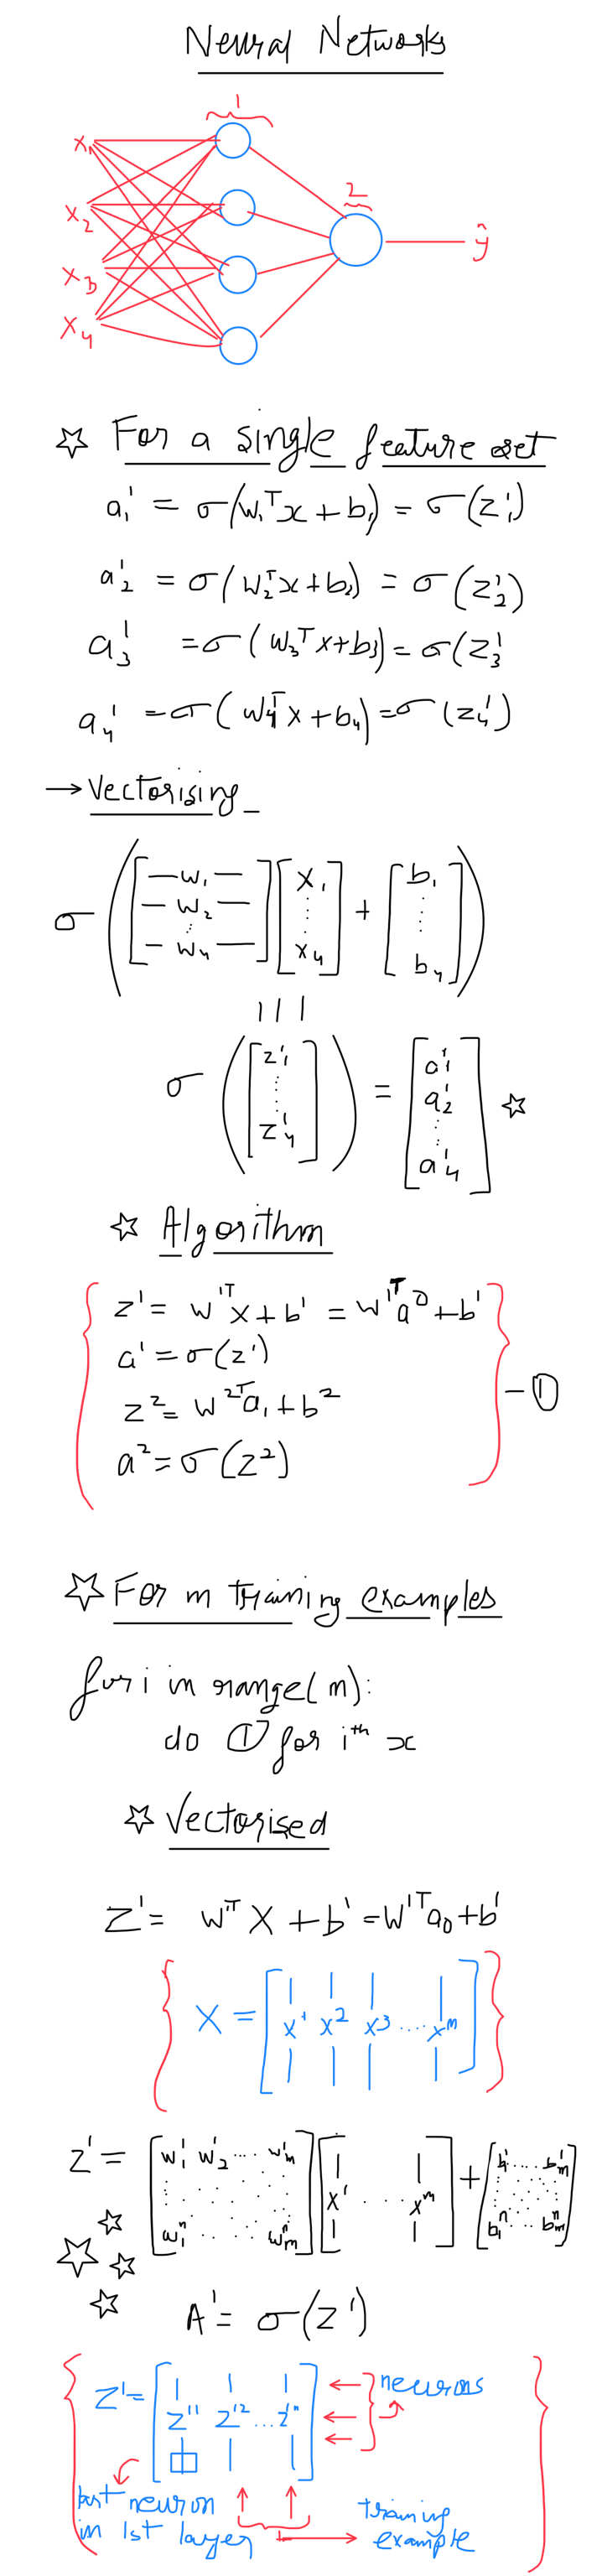 Neural Networks
1
x₁
x₂
2
ŷ
x₃
x₄
☆ For a single feature set
a₁¹ = σ(w₁ᵀx + b₁) = σ(z₁¹)
a₂¹ = σ(w₂ᵀx + b₂) = σ(z₂¹)
a₃¹ = σ(w₃ᵀx + b₃) = σ(z₃¹
a₄¹ = σ(w₄ᵀx + b₄) = σ(z₄¹)
→ Vectorising
σ ( [ —w₁— — w₂ — : — w₄ — ] [ x₁ : : x₄ ] + [ b₁ : : b₄ ] )
|||
σ ( [ z₁¹ : : z₄¹ ] ) = [ a₁¹ a₂¹ : : a₄¹ ] ☆
☆ Algorithm
z¹ = w¹ᵀx + b¹ = w¹ᵀa⁰ + b¹
a¹ = σ(z¹)
- ①
z² = w²ᵀa₁ + b²
a² = σ(z²)
☆ For m training examples
for i in range(m):
do ① for iᵗʰ x
☆ Vectorised
Z¹ = wᵀX + b¹ = W¹ᵀa₀ + b¹
{ X = [ x¹ x² x³ .... xᵐ ] }
z¹ = [ w₁¹ w₂¹ ... wₘ¹ w₁ⁿ .... wₘⁿ ] [ x¹ ... xᵐ ] + [ b₁¹ .... bₘ¹ b₁ⁿ ... bₘⁿ ]
A¹ = σ(z¹)
Z¹ = [ z¹¹ z¹² ... z¹ⁿ ] ← neurons
last neuron
in 1st layer
training
example